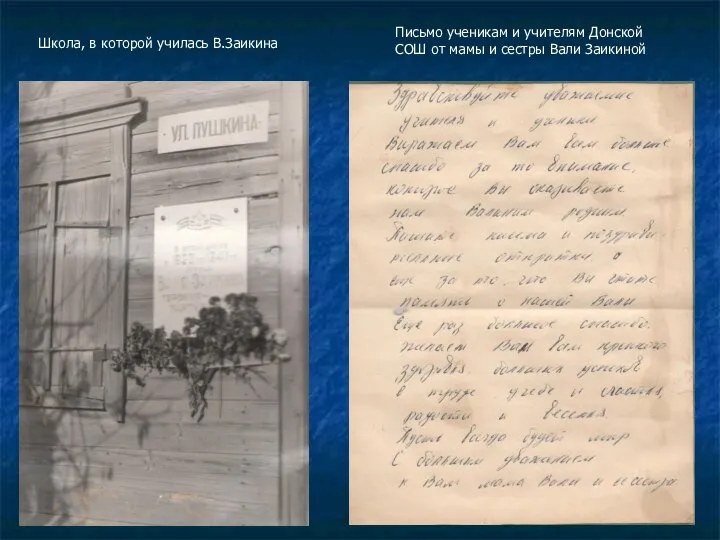 Школа, в которой училась В.Заикина
Письмо ученикам и учителям Донской
СОШ от мамы и сестры Вали Заикиной
УЛ. ПУШКИНА
Здравствуйте уважаемые
учителя и ученики
Выражаем Вам всем большое
спасибо за то внимание,
которое Вы оказываете
нам Валиным родным
Пишите письма и поздрави-
тельные открытки, а
еще за то, что Вы чтите
память о нашей Вали
Еще раз большое спасибо.
Желаем Вам всем крепкого
здоровья, больших успехов
в труде учебе и счастья,
радости и веселья
Пусть всегда будет мир
С большим уважением
к Вам мама Вали и сестра